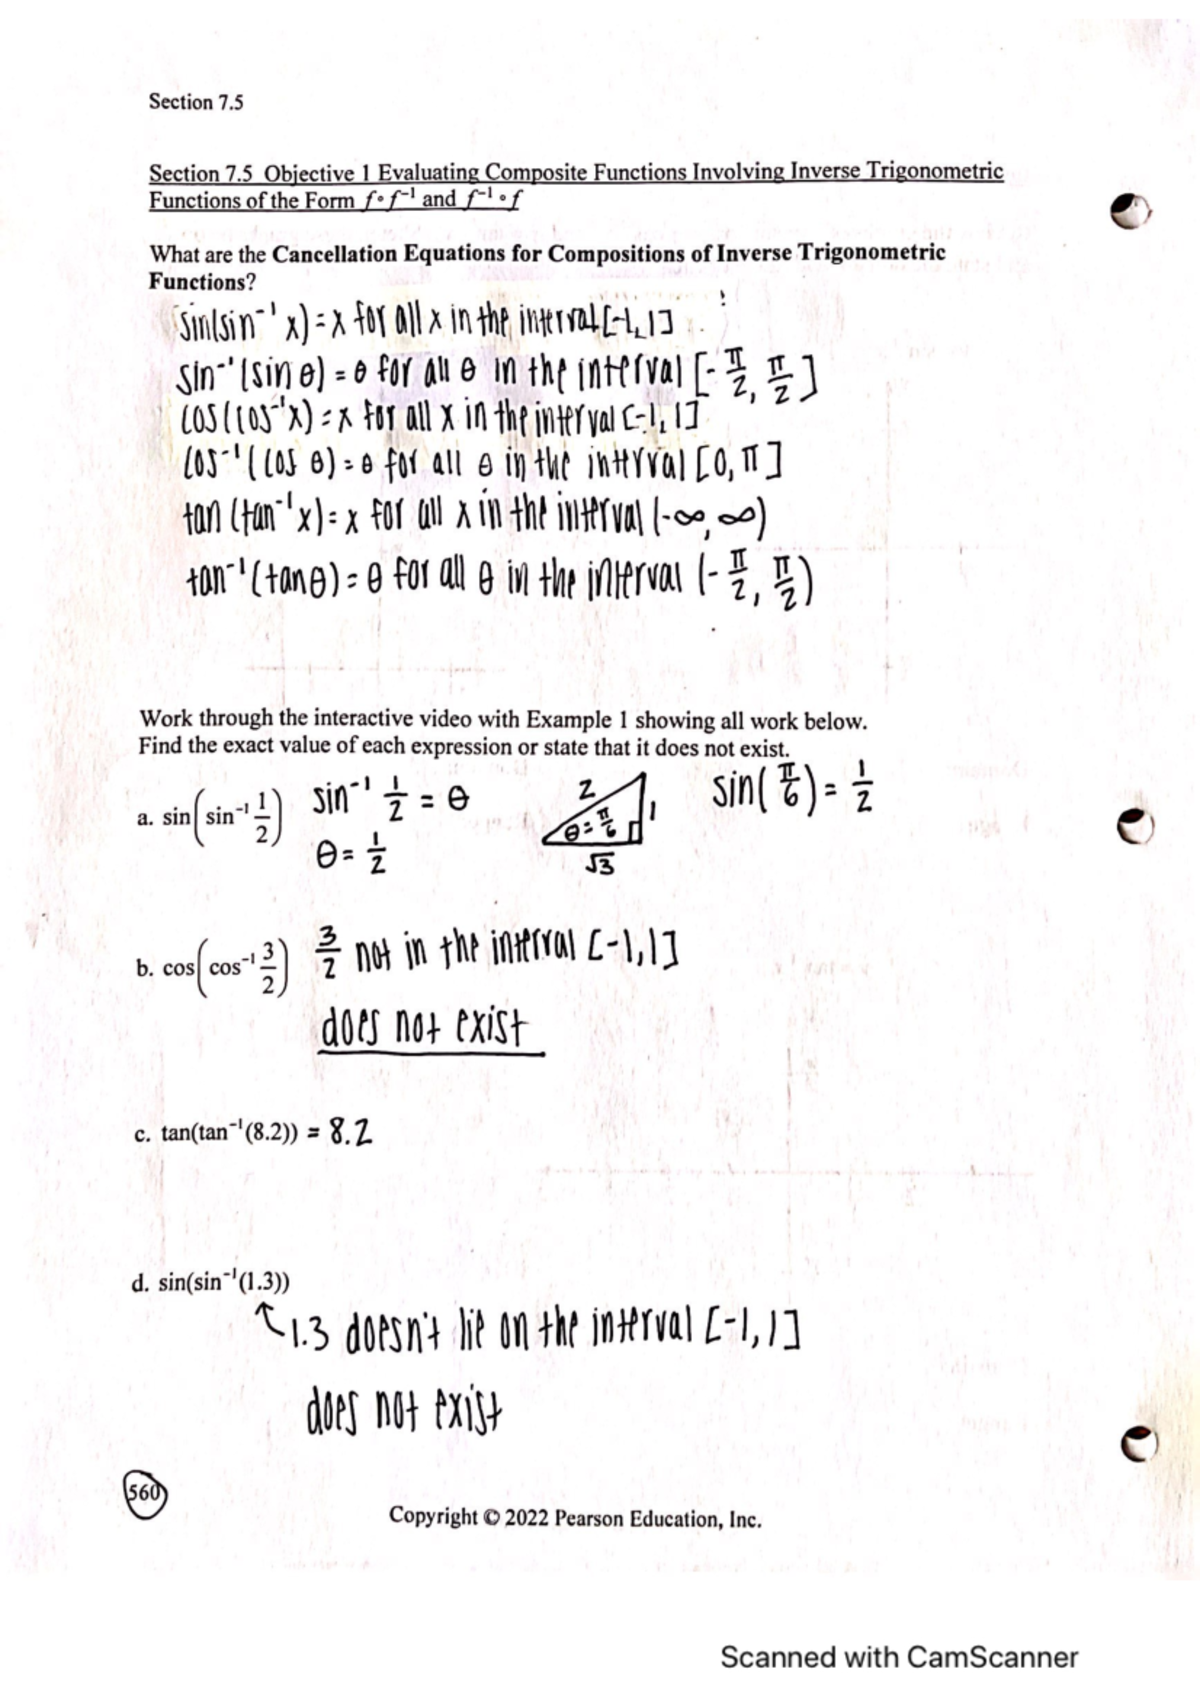 Section 7.5
Section 7.5 Objective 1 Evaluating Composite Functions Involving Inverse Trigonometric
Functions of the Form f∘f⁻¹ and f⁻¹∘f
What are the Cancellation Equations for Compositions of Inverse Trigonometric
Functions?
sin(sin⁻¹x) = x for all x in the interval [-1, 1]
sin⁻¹(sin θ) = θ for all θ in the interval [-π/2, π/2]
cos(cos⁻¹x) = x for all x in the interval [-1, 1]
cos⁻¹(cos θ) = θ for all θ in the interval [0, π]
tan(tan⁻¹x) = x for all x in the interval (-∞, ∞)
tan⁻¹(tanθ) = θ for all θ in the interval (-π/2, π/2)
Work through the interactive video with Example 1 showing all work below.
Find the exact value of each expression or state that it does not exist.
a. sin(sin⁻¹ 1/2) sin⁻¹ 1/2 = θ 2 θ = π/6 1 √3 sin(π/6) = 1/2
θ = 1/2
b. cos(cos⁻¹ 3/2) 3/2 not in the interval [-1, 1]
does not exist
c. tan(tan⁻¹(8.2)) = 8.2
d. sin(sin⁻¹(1.3))
↑1.3 doesn't lie on the interval [-1, 1]
does not exist
560
Copyright © 2022 Pearson Education, Inc.
Scanned with CamScanner